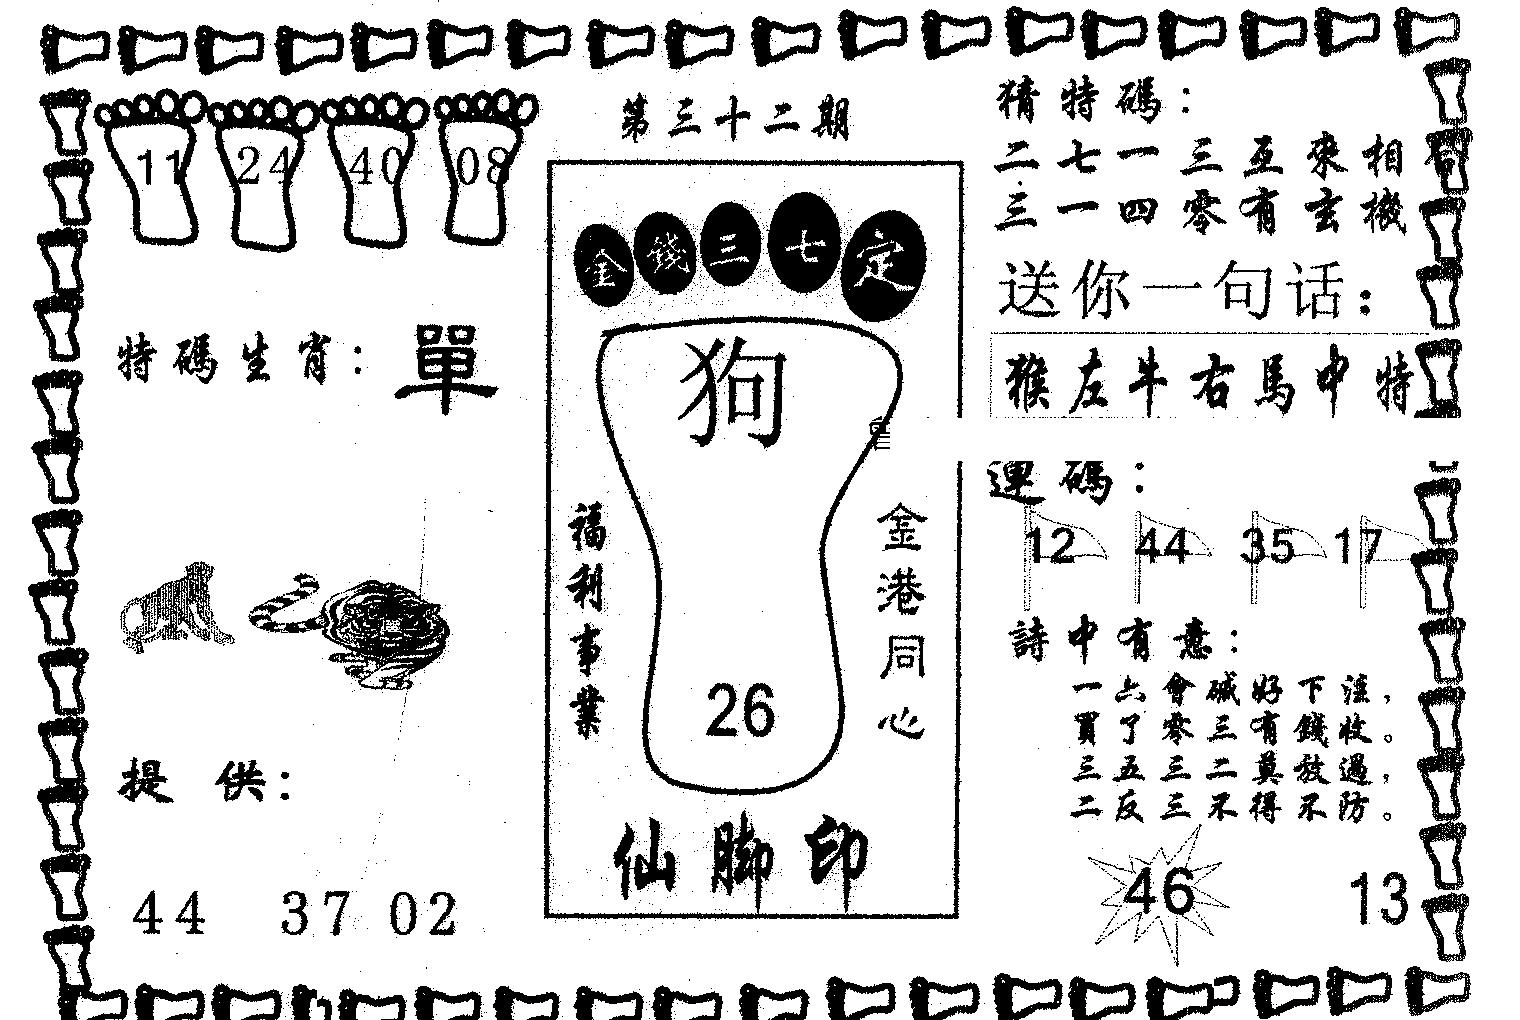 第三十二期
11 24 40 08
特碼生肖：單
提供：
44 37 02
金錢三七定
狗
福利事業
金港同心
26
仙脚印
猜特碼：
二七一三互來相同
三一四零有玄機
送你一句话：
猴左牛右馬中特
連碼：
12 44 35 17
詩中有意：
一六會碱好下注，
買了零三有錢收。
三五三二莫放過，
二反三不得不防。
46 13